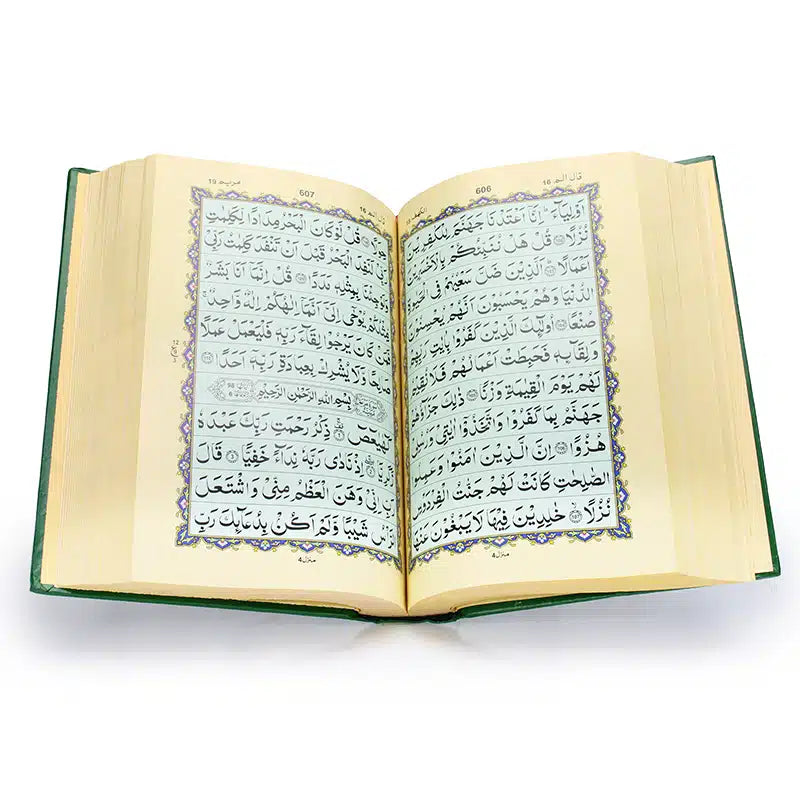 قال الم 16
606
الكهف 18
اَوْلِيَآءَ ؕ اِنَّاۤ اَعْتَدْنَا جَهَنَّمَ لِلْكٰفِرِيْنَ
نُزُلًا قُلْ هَلْ نُنَبِّئُكُمْ بِالْاَخْسَرِيْنَ
اَعْمَالًا اَلَّذِيْنَ ضَلَّ سَعْيُهُمْ فِى
الدُّنْيَا وَهُمْ يَحْسَبُوْنَ اَنَّهُمْ يُحْسِنُوْنَ
صُنْعًا اُولٰٓئِكَ الَّذِيْنَ كَفَرُوْا بِاٰيٰتِ رَبِّهِمْ
وَلِقَآئِهٖ فَحَبِطَتْ اَعْمَالُهُمْ فَلَا نُقِيْمُ
لَهُمْ يَوْمَ الْقِيٰمَةِ وَزْنًا ذٰلِكَ جَزَآؤُهُمْ
جَهَنَّمُ بِمَا كَفَرُوْا وَاتَّخَذُوْۤا اٰيٰتِيْ وَرُسُلِيْ
هُزُوًا اِنَّ الَّذِيْنَ اٰمَنُوْا وَعَمِلُوا
الصّٰلِحٰتِ كَانَتْ لَهُمْ جَنّٰتُ الْفِرْدَوْسِ
نُزُلًا خٰلِدِيْنَ فِيْهَا لَا يَبْغُوْنَ عَنْهَا
منزل 4
قال الم 16
607
مريم 19
قُلْ لَّوْ كَانَ الْبَحْرُ مِدَادًا لِّكَلِمٰتِ
لَنَفِدَ الْبَحْرُ قَبْلَ اَنْ تَنْفَدَ كَلِمٰتُ رَبِّيْ
جِئْنَا بِمِثْلِهٖ مَدَدًا قُلْ اِنَّمَاۤ اَنَا بَشَرٌ
مِّثْلُكُمْ يُوْحٰۤى اِلَيَّ اَنَّمَاۤ اِلٰهُكُمْ اِلٰهٌ وَّاحِدٌ ۚ
فَمَنْ كَانَ يَرْجُوْا لِقَآءَ رَبِّهٖ فَلْيَعْمَلْ عَمَلًا
صَالِحًا وَّلَا يُشْرِكْ بِعِبَادَةِ رَبِّهٖۤ اَحَدًا
بِسْمِ اللهِ الرَّحْمٰنِ الرَّحِيْمِ
كٓهٰيٰعٓصٓ ذِكْرُ رَحْمَتِ رَبِّكَ عَبْدَهٗ
زَكَرِيَّا اِذْ نَادٰى رَبَّهٗ نِدَآءً خَفِيًّا قَالَ
رَبِّ اِنِّيْ وَهَنَ الْعَظْمُ مِنِّيْ وَاشْتَعَلَ
الرَّاْسُ شَيْبًا وَّلَمْ اَكُنْۢ بِدُعَآئِكَ رَبِّ
منزل 4